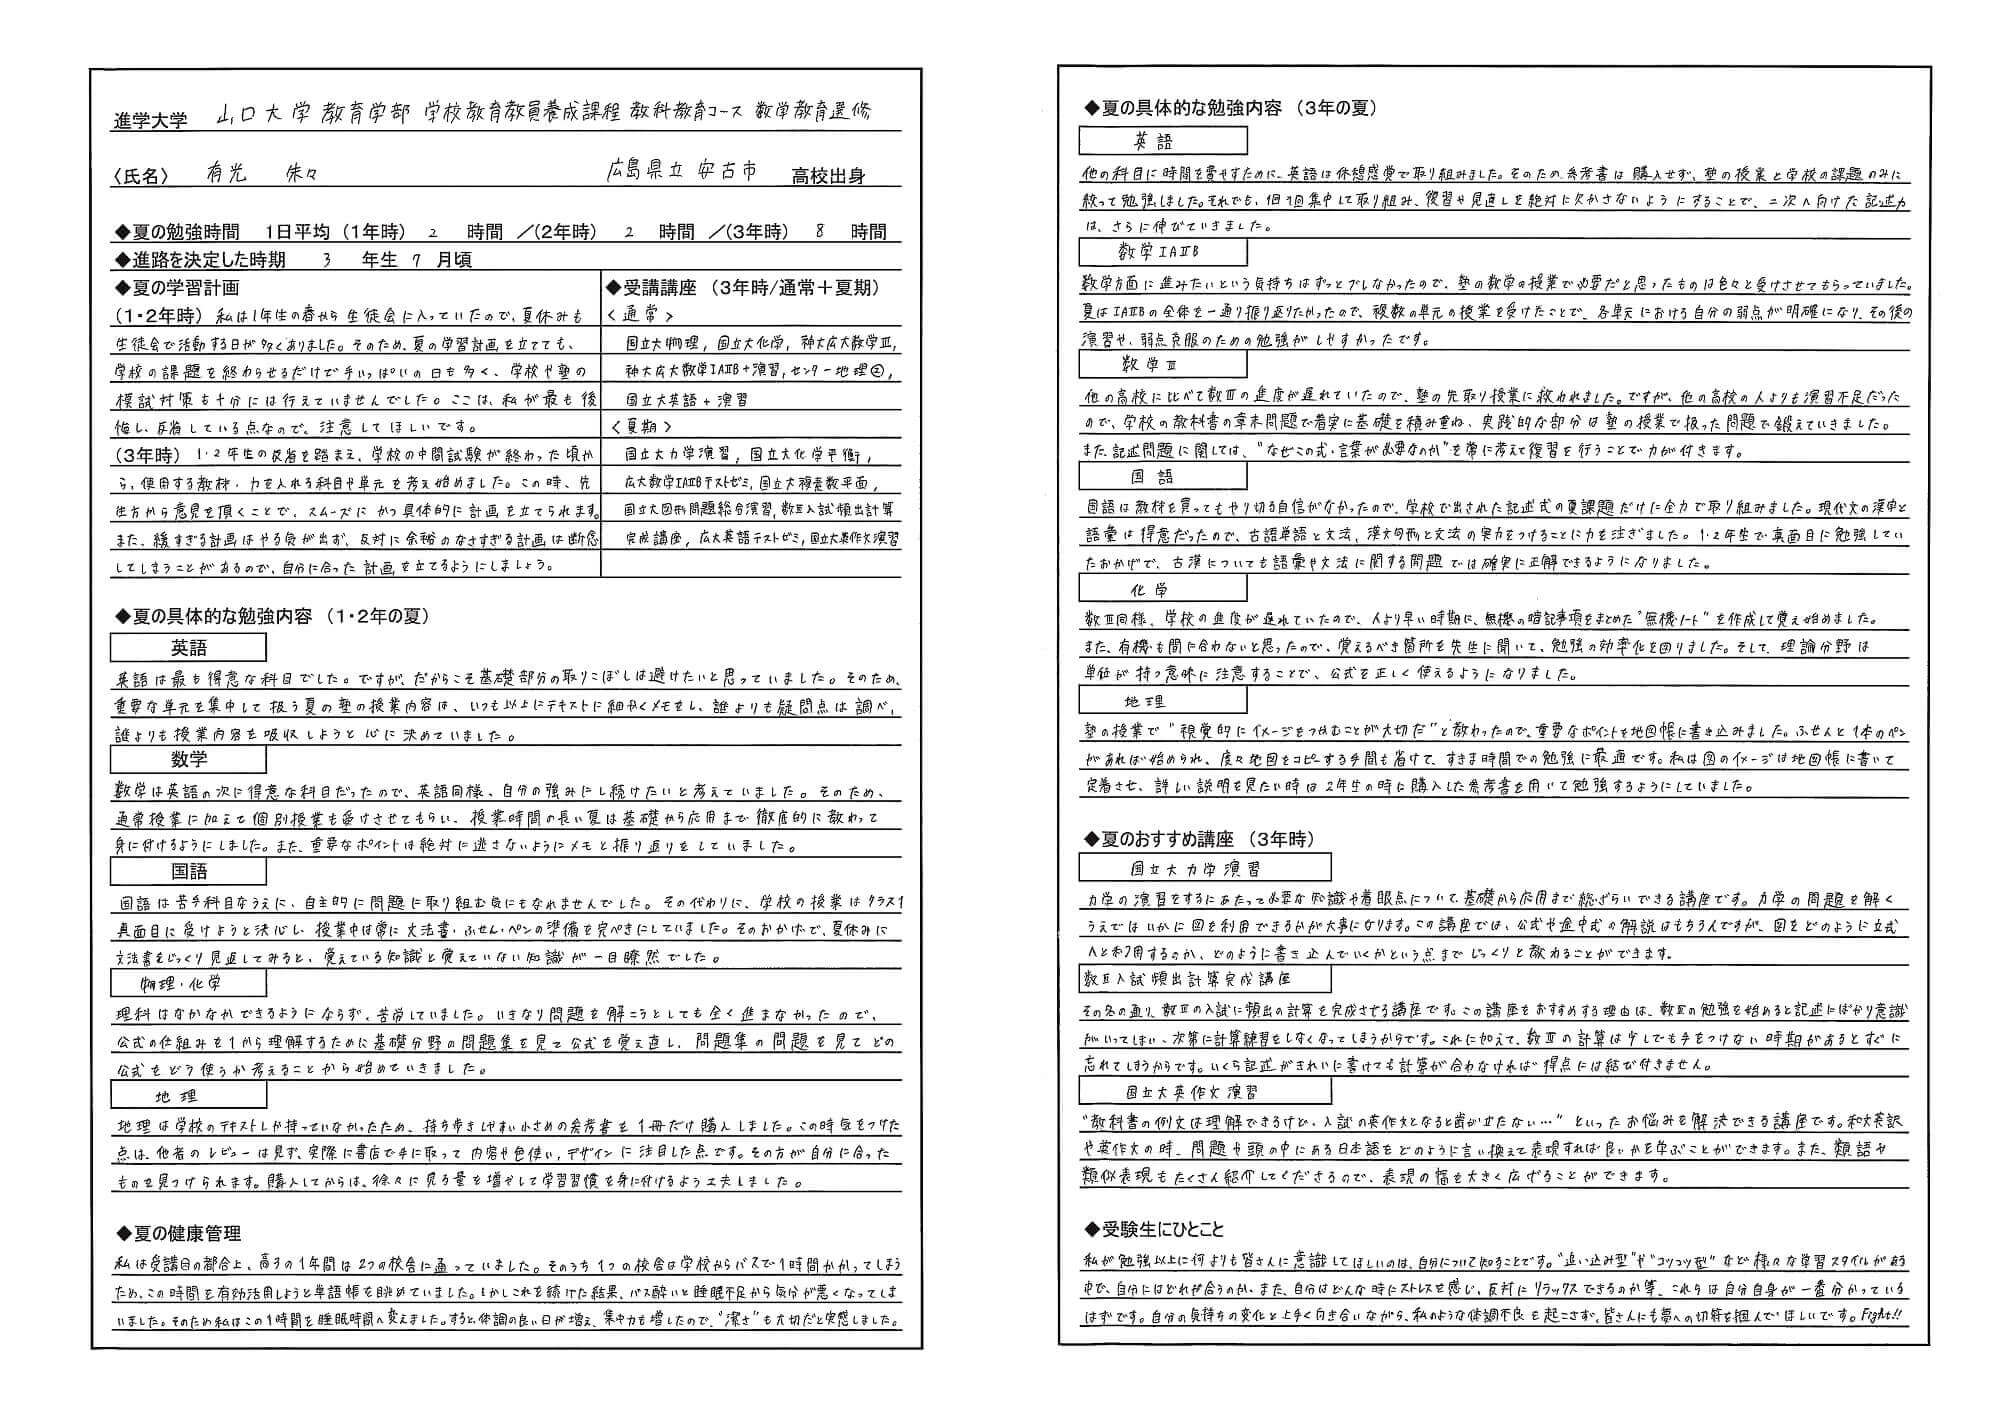 進学大学 山口大学 教育学部 学校教育教員養成課程 教科教育コース 数学教育選修
〈氏名〉 有光 朱々 広島県立 安古市 高校出身
◆夏の勉強時間 1日平均（1年時） 2 時間 ／（2年時） 2 時間 ／（3年時） 8 時間
◆進路を決定した時期 3 年生 7 月頃
◆夏の学習計画
（1・2年時）私は1年生の春から生徒会に入っていたので、夏休みも
生徒会で活動する日が多くありました。そのため、夏の学習計画を立てても、
学校の課題を終わらせるだけで手いっぱいの日も多く、学校や塾の
模試対策も十分には行えていませんでした。ここは、私が最も後
悔し、反省している点なので、注意してほしいです。
（3年時）1・2年生の反省を踏まえ、学校の中間試験が終わった頃か
ら、使用する教材・力を入れる科目や単元を考え始めました。この時、先
生方から意見を頂くことで、スムーズにかつ具体的に計画を立てられます。
また、緩すぎる計画はやる気が出ず、反対に余裕のなさすぎる計画は断念
してしまうことがあるので、自分に合った計画を立てるようにしましょう。
◆受講講座（3年時/通常＋夏期）
＜通常＞
国立大物理, 国立大化学, 神大広大数学Ⅲ,
神大広大数学ⅠAⅡB+演習, センター地理②,
国立大英語+演習
＜夏期＞
国立大力学演習, 国立大化学平衡,
広大数学ⅠAⅡBテストゼミ, 国立大複素数平面,
国立大図形問題総合演習, 数Ⅲ入試頻出計算
完成講座, 広大英語テストゼミ, 国立大英作文演習
◆夏の具体的な勉強内容（1・2年の夏）
英語
英語は最も得意な科目でした。ですが、だからこそ基礎部分の取りこぼしは避けたいと思っていました。そのため、
重要な単元を集中して扱う夏の塾の授業内容は、いつも以上にテキストに細かくメモをし、誰よりも疑問点は調べ、
誰よりも授業内容を吸収しようと心に決めていました。
数学
数学は英語の次に得意な科目だったので、英語同様、自分の強みにし続けたいと考えていました。そのため、
通常授業に加えて個別授業も受けさせてもらい、授業時間の長い夏は基礎から応用まで徹底的に教わって
身に付けるようにしました。また、重要なポイントは絶対に逃さないようにメモと振り返りをしていました。
国語
国語は苦手科目なうえに、自主的に問題に取り組む気にもなれませんでした。その代わりに、学校の授業はクラス1
真面目に受けようと決心し、授業中は常に文法書・ふせん・ペンの準備を完ぺきにしていました。そのおかげで、夏休みに
文法書をじっくり見返してみると、覚えている知識と覚えていない知識が一目瞭然でした。
物理・化学
理科はなかなかできるようにならず、苦労していました。いきなり問題を解こうとしても全く進まなかったので、
公式の仕組みを1から理解するために基礎分野の問題集を見て公式を覚え直し、問題集の問題を見てどの
公式をどう使うか考えることから始めていきました。
地理
地理は学校のテキストしか持っていなかったため、持ち歩きしやすい小さめの参考書を1冊だけ購入しました。この時気をつけた
点は、他者のレビューは見ず、実際に書店で手に取って内容や色使い, デザインに注目した点です。その方が自分に合った
ものを見つけられます。購入してからは、徐々に見る量を増やして学習習慣を身に付けるよう工夫しました。
◆夏の健康管理
私は受講日の都合上、高3の1年間は2つの校舎に通っていました。そのうち1つの校舎は学校からバスで1時間かかってしまう
ため、この時間を有効活用しようと単語帳を眺めていました。しかしこれを続けた結果、バス酔いと睡眠不足から気分が悪くなってしま
いました。そのため私はこの1時間を睡眠時間へ変えました。すると、体調の良い日が増え、集中力も増したので、"潔さ"も大切だと実感しました。
◆夏の具体的な勉強内容（3年の夏）
英語
他の科目に時間を費やすために、英語は休憩感覚で取り組みました。そのため、参考書は購入せず、塾の授業と学校の課題のみに
絞って勉強しました。それでも、1回1回集中して取り組み、復習や見直しを絶対に欠かさないようにすることで、二次へ向けた記述力
は、さらに伸びていきました。
数学ⅠAⅡB
数学方面に進みたいという気持ちはずっとブレなかったので、塾の数学の授業で必要だと思ったものは色々と受けさせてもらっていました。
夏はⅠAⅡBの全体を一通り振り返りたかったので、複数の単元の授業を受けたことで、各単元における自分の弱点が明確になり、その後の
演習や、弱点克服のための勉強がしやすかったです。
数学Ⅲ
他の高校に比べて数Ⅲの進度が遅れていたので、塾の先取り授業に救われました。ですが、他の高校の人よりも演習不足だった
ので、学校の教科書の章末問題で着実に基礎を積み重ね、実践的な部分は塾の授業で扱った問題で鍛えていきました。
また、記述問題に関しては、"なぜこの式・言葉が必要なのか"を常に考えて復習を行うことで力が付きます。
国語
国語は教材を買ってもやり切る自信がなかったので、学校で出された記述式の夏課題だけに全力で取り組みました。現代文の漢字と
語彙は得意だったので、古語単語と文法, 漢文句形と文法の実力をつけることに力を注ぎました。1・2年生で真面目に勉強してい
たおかげで、古漢についても語彙や文法に関する問題では確実に正解できるようになりました。
化学
数Ⅲ同様、学校の進度が遅れていたので、人より早い時期に、無機の暗記事項をまとめた"無機ノート"を作成して覚え始めました。
また、有機も間に合わないと思ったので、覚えるべき箇所を先生に聞いて、勉強の効率化を図りました。そして、理論分野は
単位が持つ意味に注意することで、公式を正しく使えるようになりました。
地理
塾の授業で"視覚的にイメージをつかむことが大切だ"と教わったので、重要なポイントを地図帳に書き込みました。ふせんと1本のペン
があれば始められ、度々地図をコピーする手間も省けて、すきま時間での勉強に最適です。私は図のイメージは地図帳に書いて
定着させ、詳しい説明を見たい時は2年生の時に購入した参考書を用いて勉強するようにしていました。
◆夏のおすすめ講座（3年時）
国立大力学演習
力学の演習をするにあたって必要な知識や着眼点について、基礎から応用まで総ざらいできる講座です。力学の問題を解く
うえではいかに図を利用できるかが大事になります。この講座では、公式や途中式の解説はもちろんですが、図をどのように立式
へと利用するのか、どのように書き込んでいくかという点までじっくりと教わることができます。
数Ⅲ入試頻出計算完成講座
その名の通り、数Ⅲの入試に頻出の計算を完成させる講座です。この講座をおすすめする理由は、数Ⅲの勉強を始めると記述にばかり意識
がいってしまい、次第に計算練習をしなくなってしまうからです。これに加えて、数Ⅲの計算は少しでも手をつけない時期があるとすぐに
忘れてしまうからです。いくら記述がきれいに書けても計算が合わなければ得点には結び付きません。
国立大英作文演習
"教科書の例文は理解できるけど、入試の英作文となると歯が立たない…"といったお悩みを解決できる講座です。和文英訳
や英作文の時、問題や頭の中にある日本語をどのように言い換えて表現すれば良いかを学ぶことができます。また、類語や
類似表現もたくさん紹介してくださるので、表現の幅を大きく広げることができます。
◆受験生にひとこと
私が勉強以上に何よりも皆さんに意識してほしいのは、自分について知ることです。"追い込み型"や"コツコツ型"など様々な学習スタイルがある
中で、自分にはどれが合うのか、また、自分はどんな時にストレスを感じ、反対にリラックスできるのか等、これらは自分自身が一番分かっている
はずです。自分の気持ちの変化と上手く向き合いながら、私のような体調不良を起こさず、皆さんにも夢への切符を掴んでほしいです。Fight!!